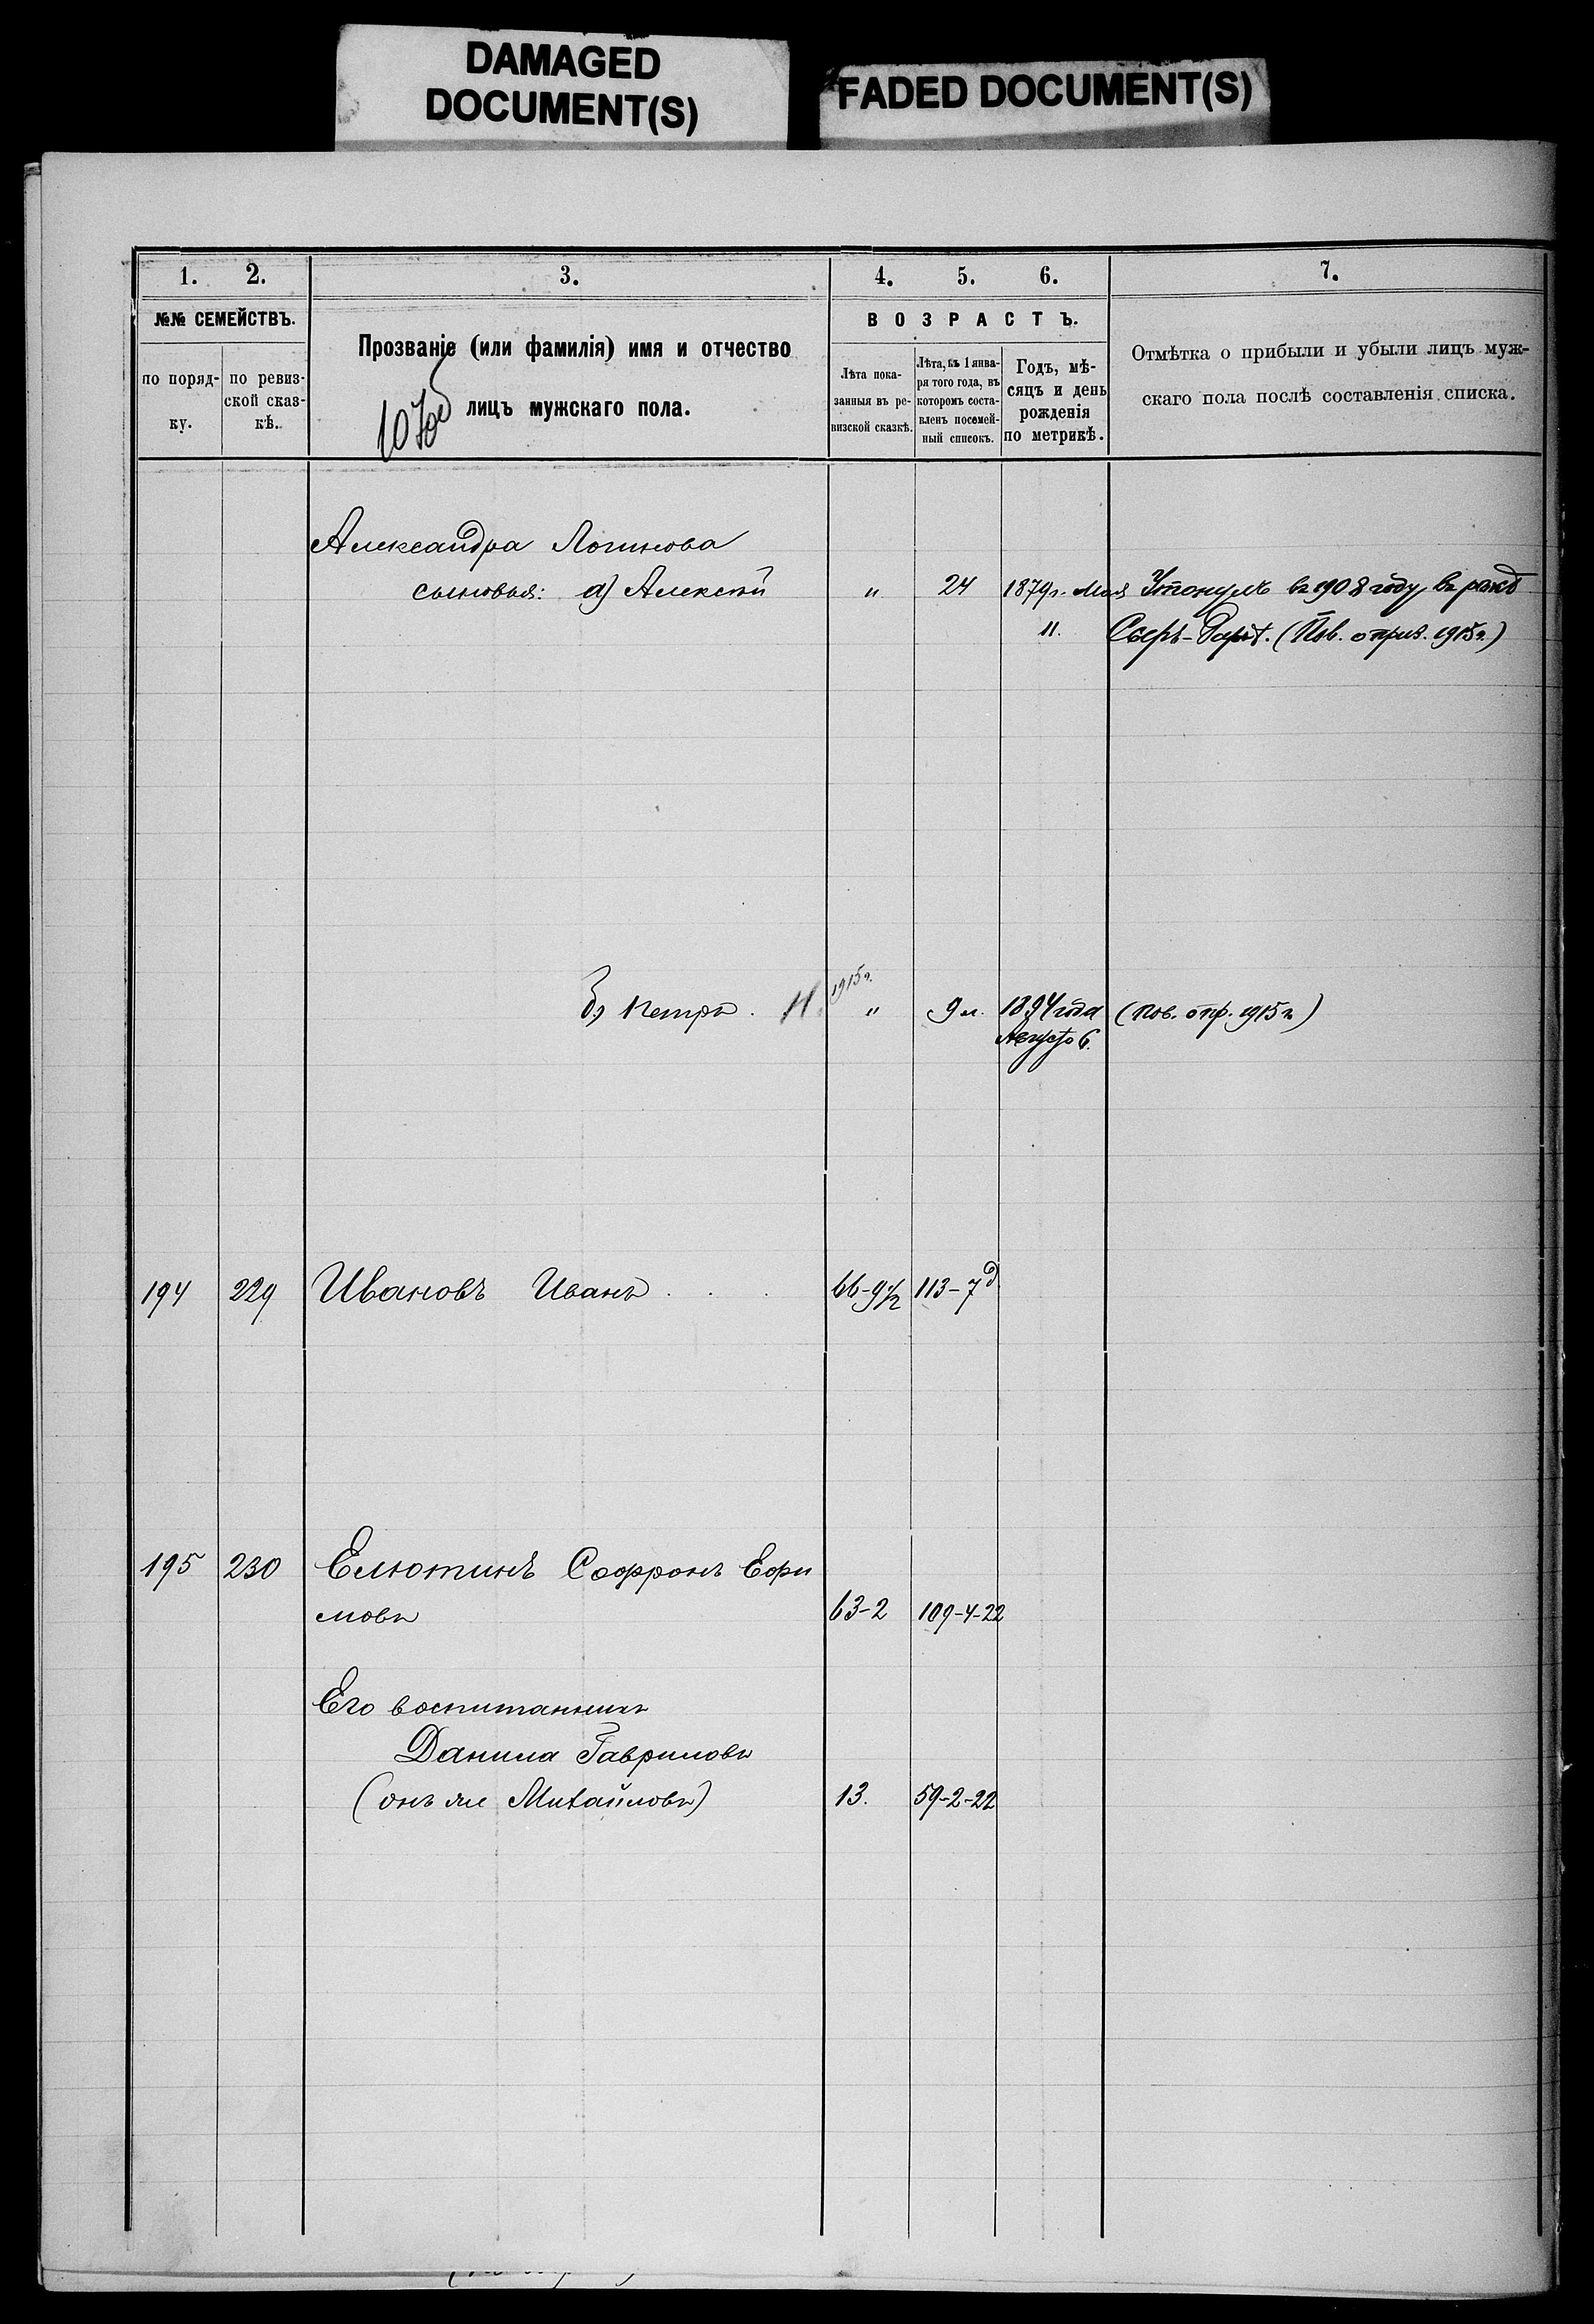 DAMAGED
DOCUMENT(S)
FADED DOCUMENT(S)
1. 2. 3. 4. 5. 6. 7.
№№ СЕМЕЙСТВЪ.
по поряд-
ку.
по ревиз-
ской сказ-
кѣ.
Прозваніе (или фамилія) имя и отчество
лицъ мужскаго пола.
ВОЗРАСТЪ.
Лѣта пока-
занныя въ ре-
визской сказкѣ.
Лѣта, къ 1 янва-
ря того года, въ
которомъ соста-
вленъ посемей-
ный списокъ.
Годъ, мѣ-
сяцъ и день
рожденія
по метрикѣ.
Отмѣтка о прибыли и убыли лицъ муж-
скаго пола послѣ составленія списка.
Александра Логинова
сыновья: а) Алексѣй " 24 1879г. Мая Утонулъ въ 1908 году въ рѣкѣ
11. (Пов. о приз. 1915г.)
1915г.
б) Петръ . " 9 м. 1894 года (пов. о пр. 1915г)
Августа 6.
194 229 Ивановъ Иванъ . . . 66-9½ 113-7
195 230 Елютинъ Софронъ Ефи
мовъ 63-2 109-4-22
Его воспитанникъ
Данила Гавриловъ
(онъ же Михайловъ) 13. 59-2-22